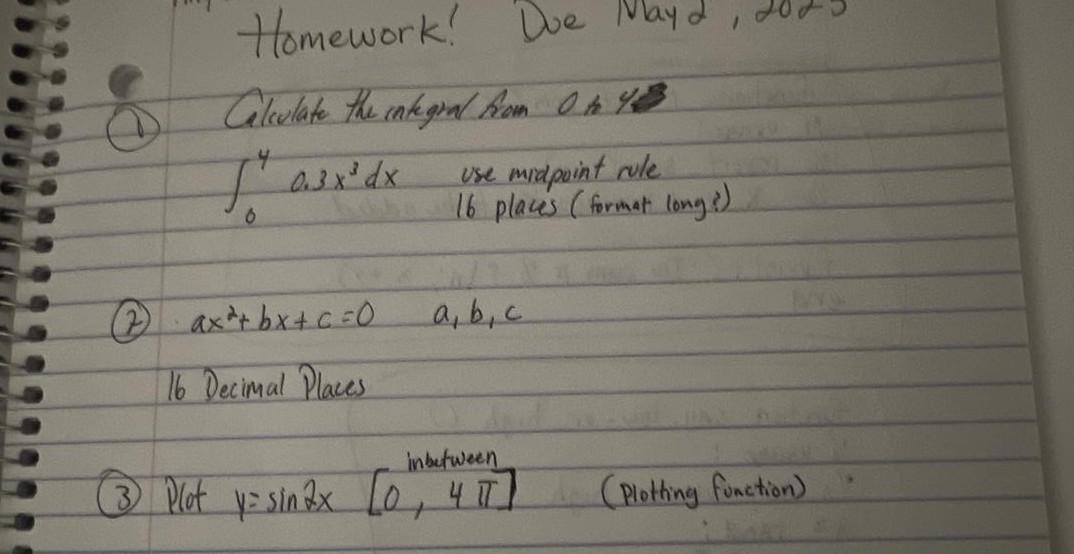 Homework! Due May 2, 2023
① Calculate the integral from 0 to 4
∫₀⁴ 0.3x³ dx use midpoint rule
16 places (format long?)
② ax²+bx+c=0 a, b, c
16 Decimal Places
inbetween
③ Plot y=sin2x [0, 4π] (Plotting function)